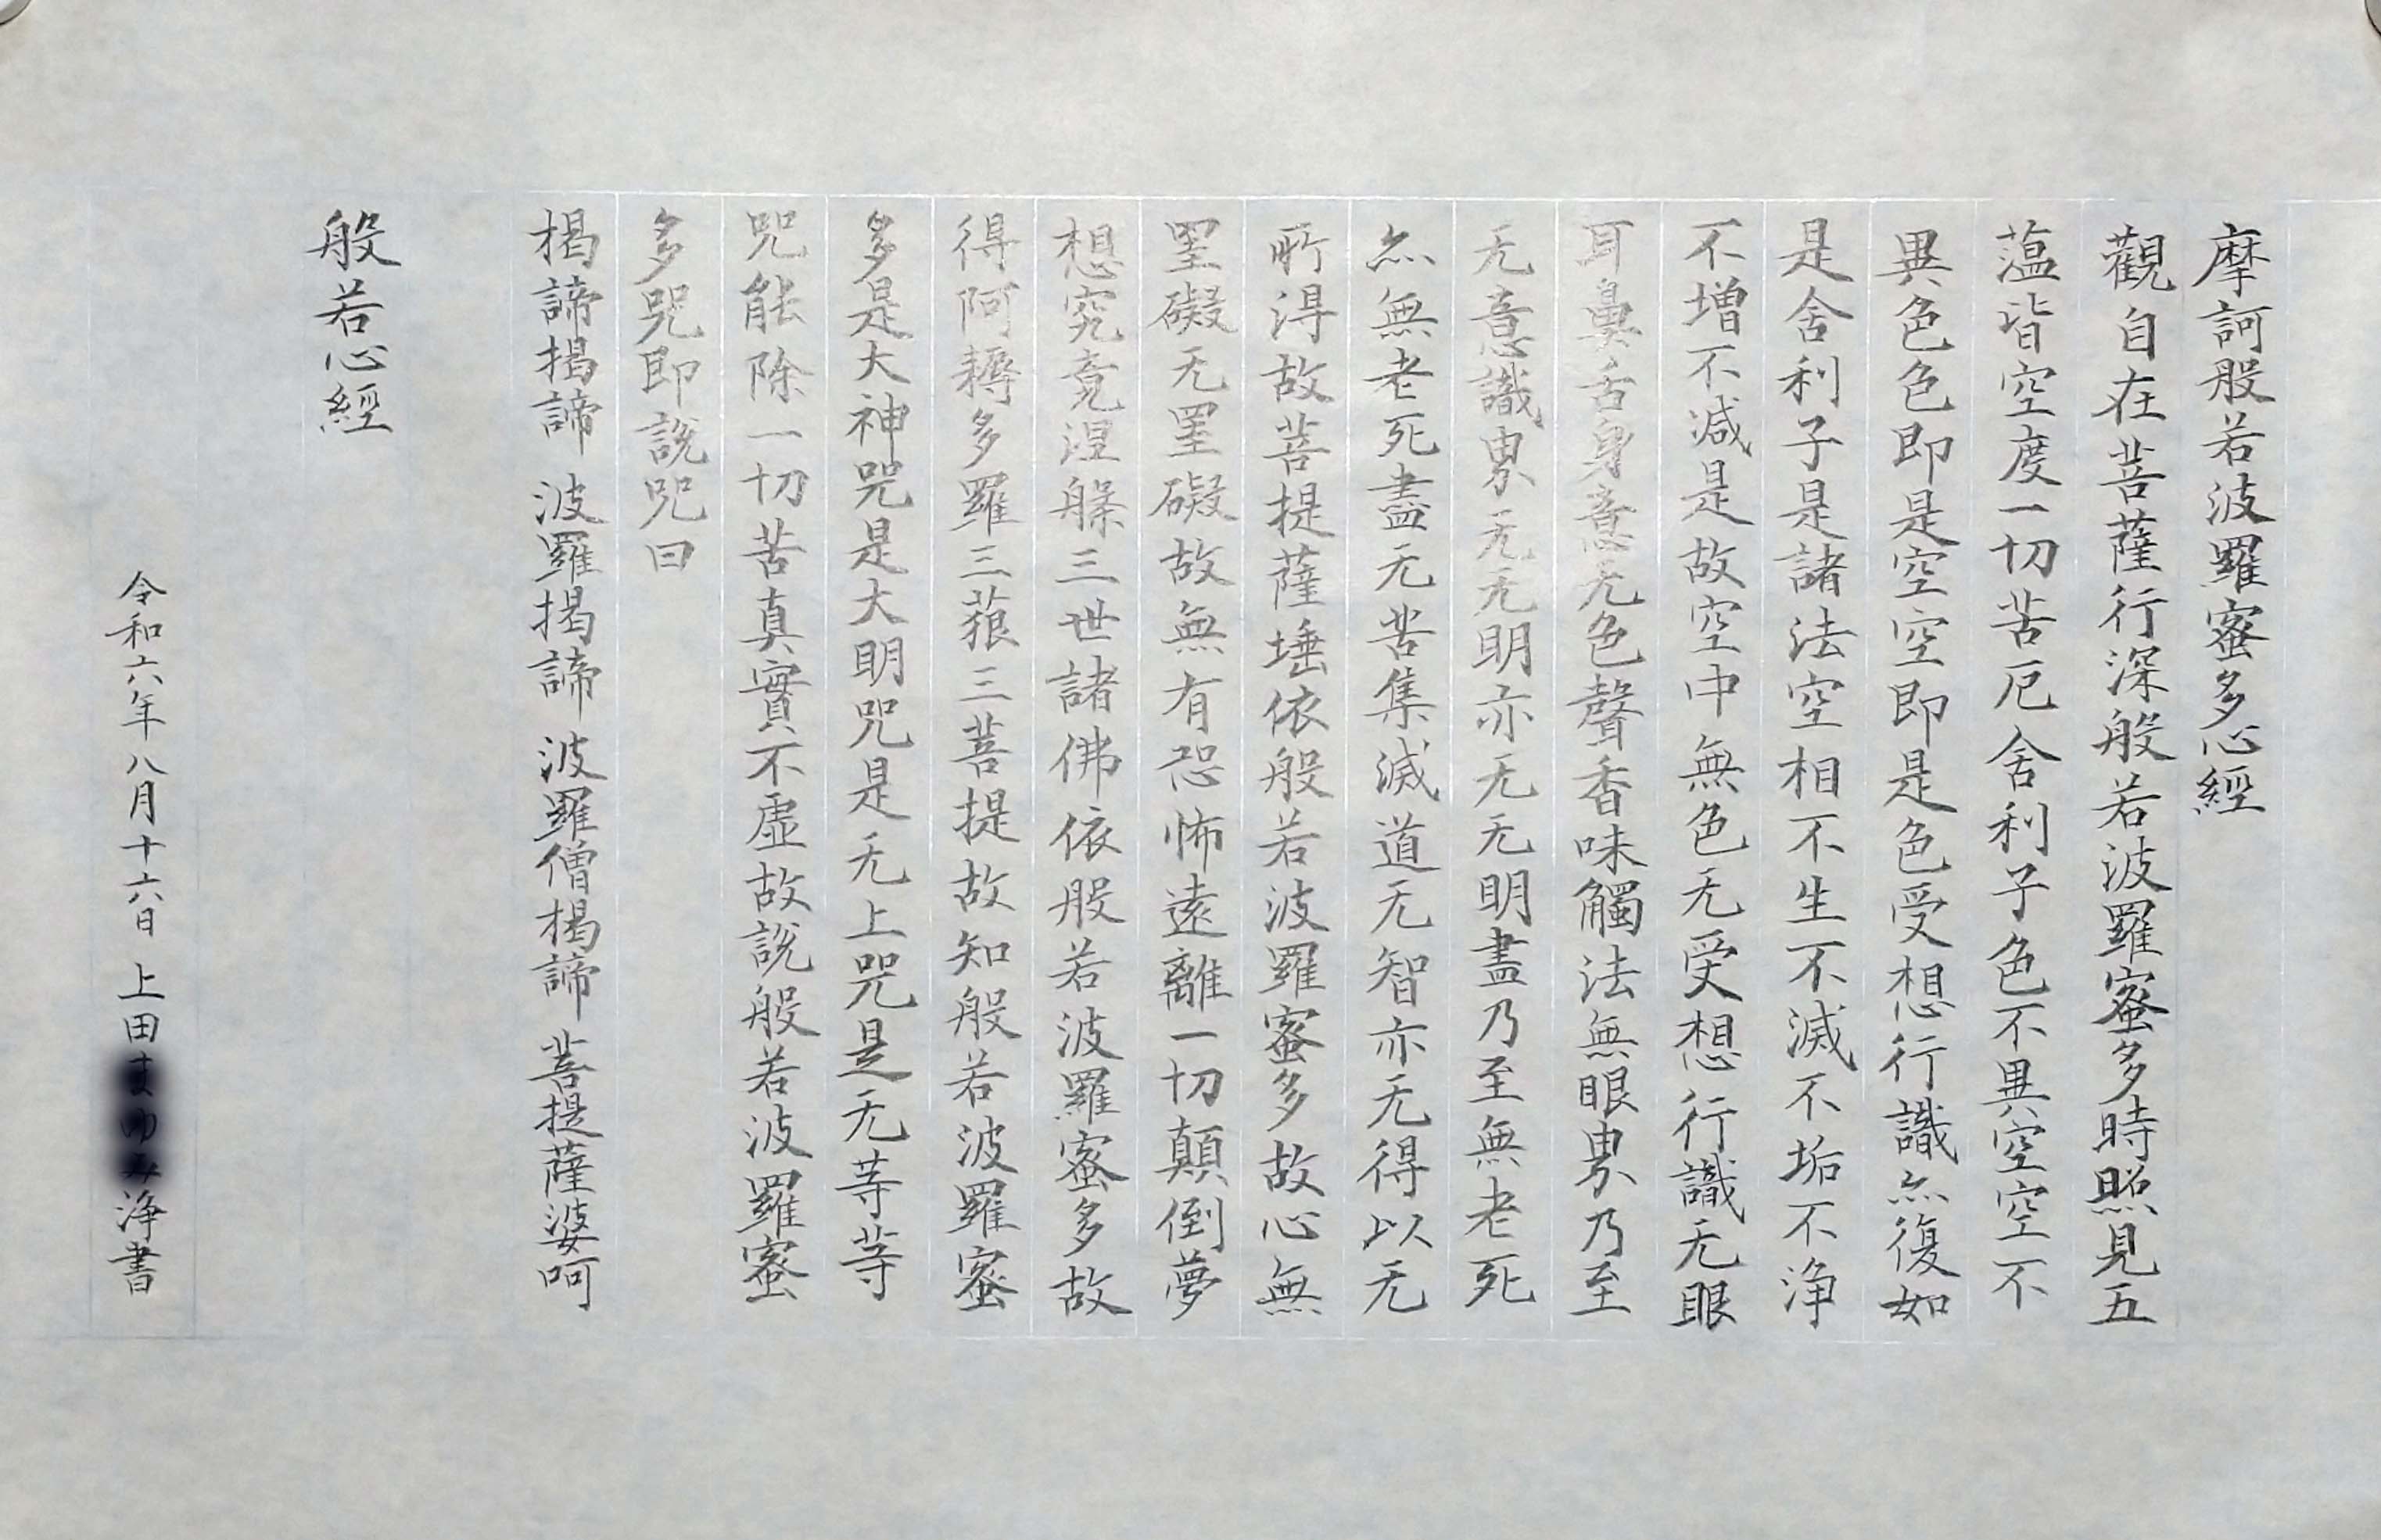 摩訶般若波羅蜜多心經
觀自在菩薩行深般若波羅蜜多時照見五
薀皆空度一切苦厄舍利子色不異空空不
異色色即是空空即是色受想行識亦復如
是舍利子是諸法空相不生不滅不垢不淨
不增不減是故空中無色无受想行識无眼
耳鼻舌身意无色聲香味觸法無眼界乃至
无意識界无无明亦无无明盡乃至無老死
亦無老死盡无苦集滅道无智亦无得以无
所得故菩提薩埵依般若波羅蜜多故心無
罣礙无罣礙故無有恐怖遠離一切顛倒夢
想究竟涅槃三世諸佛依般若波羅蜜多故
得阿耨多羅三藐三菩提故知般若波羅蜜
多是大神咒是大明咒是无上咒是无等等
咒能除一切苦真實不虛故說般若波羅蜜
多咒即說咒曰
揭諦揭諦 波羅揭諦 波羅僧揭諦 菩提薩婆呵
般若心經
令和六年八月十六日 上田 浄書